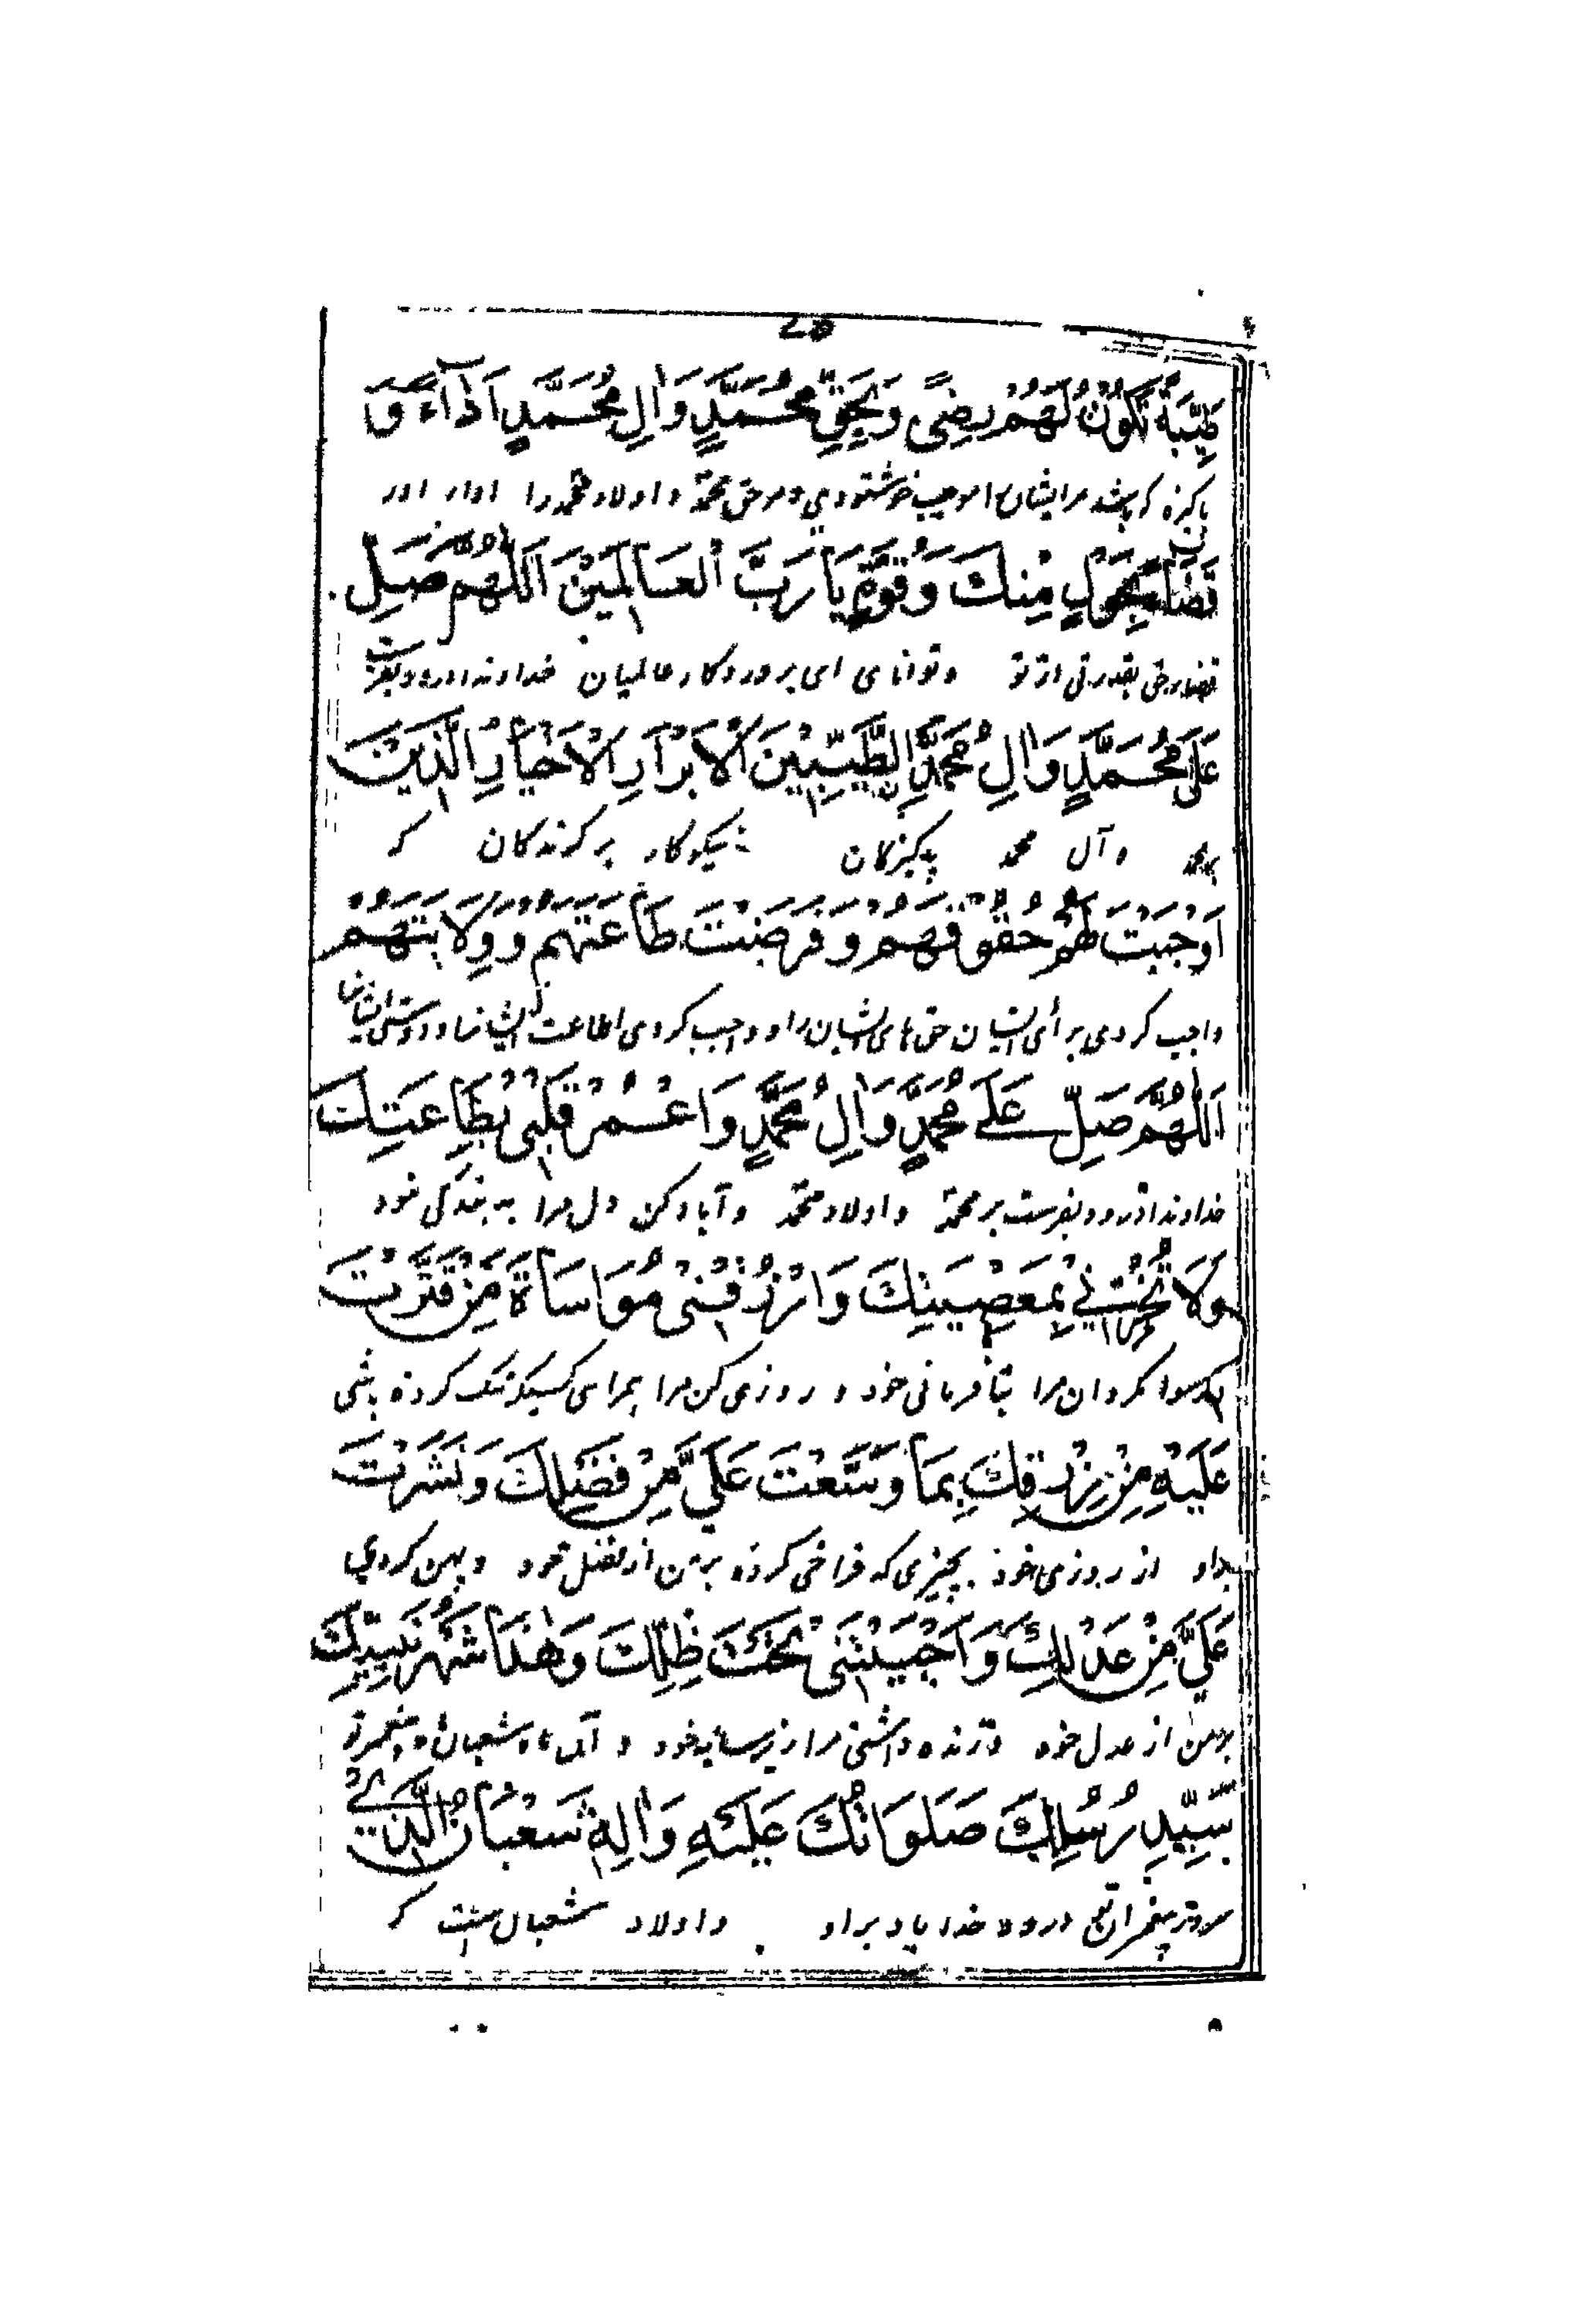 طَيِّبَةً تَكُونُ لَهُمْ رِضًى وَبِحَقِّ مُحَمَّدٍ وَاٰلِ مُحَمَّدٍ اَدَآءً وَ
پاکیزه که باشد مر ایشان را موجب خوشنودی و مر حق محمد و اولاد محمد را ادا و
قَضَآءً بِحَوْلٍ مِنْكَ وَقُوَّةٍ يَا رَبَّ الْعَالَمِيْنَ اَللّٰهُمَّ صَلِّ
بقدرتی از تو وتوانای ای پروردکار عالمیان خداوندا درود بفرست
عَلٰى مُحَمَّدٍ وَاٰلِ مُحَمَّدٍ الطَّيِّبِيْنَ الْاَبْرَارِ الْاَخْيَارِ الَّذِيْنَ
بر محمد و آل محمد پاکیزکان نیکوکار برکزیدکان که
اَوْجَبْتَ لَهُمْ حُقُوْقَهُمْ وَفَرَضْتَ طَاعَتَهُمْ وَوِلَايَتَهُمْ
واجب کردی برای ایشان حق های ایشان را و واجب کردی اطاعت ایشانرا و دوستی ایشانرا
اَللّٰهُمَّ صَلِّ عَلٰى مُحَمَّدٍ وَاٰلِ مُحَمَّدٍ وَاعْمُرْ قَلْبِىْ بِطَاعَتِكَ
خداوندا درود بفرست بر محمد و اولاد محمد و آباد کن دل مرا به بندکی خود
وَلَا تُخْزِنِيْ بِمَعْصِيَتِكَ وَارْزُقْنِىْ مُوَاسَاةَ مَنْ قَتَّرْتَ
رسوا مکردان مرا بنافرمانی خود و روزی کن مرا کسیکه تنک کرده باشی
عَلَيْهِ مِنْ رِزْقِكَ بِمَا وَسَّعْتَ عَلَيَّ مِنْ فَضْلِكَ وَنَشَرْتَ
براو از روزی خود بچیزی که فراخی کرده بر من از فضل خود و پهن کردی
عَلَيَّ مِنْ عَدْلِكَ وَاَحْيَيْتَنِىْ تَحْتَ ظِلِّكَ وَهٰذَا شَهْرُ نَبِيِّكَ
برمن از عدل خود و زنده داشتی مرا زیر سایه خود و آن ماه شعبان پیغمبر تو
سَيِّدِ رُسُلِكَ صَلَوَاتُكَ عَلَيْهِ وَاٰلِهٖ شَعْبَانُ الَّذِيْ
پیغمبران درود خدا باد براو و اولاد شعبان است که